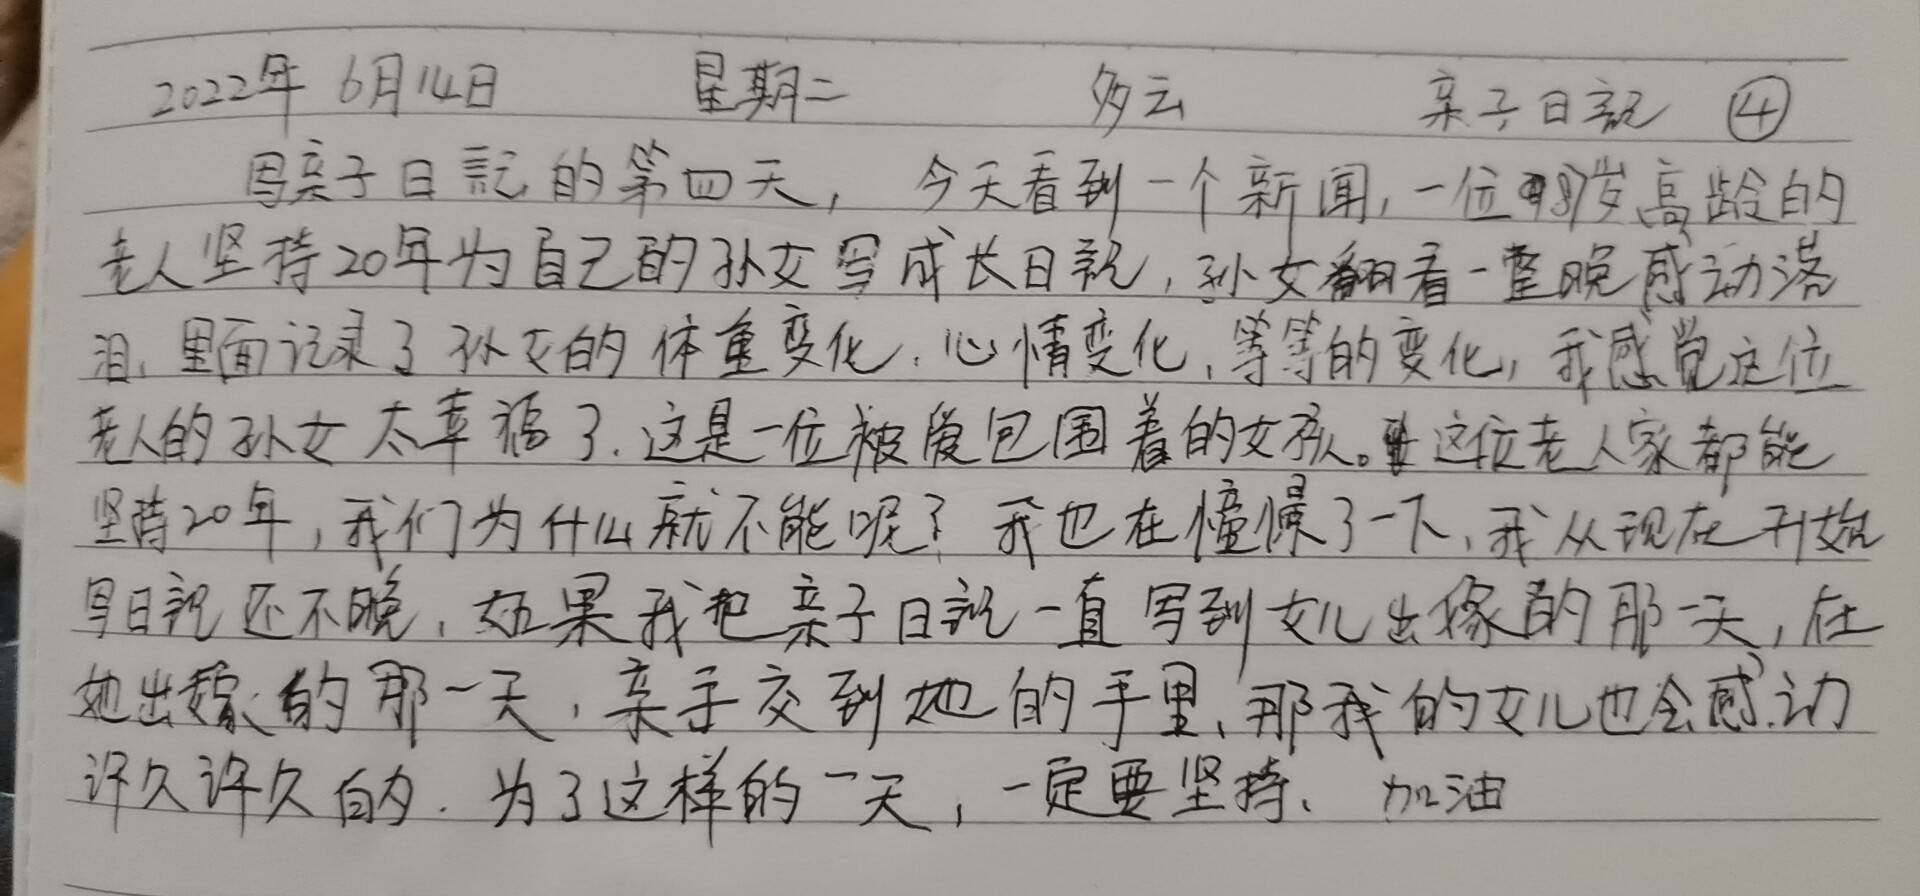 2022年 6月14日 星期二 多云 亲子日記 ④
写亲子日記的第四天，今天看到一个新闻，一位87岁高龄的
老人坚持20年为自己的孙女写成长日記，孙女翻看一整晚感动落
泪，里面记录了孙女的体重变化，心情变化，等等的变化，我感觉这位
老人的孙女太幸福了，这是一位被爱包围着的女孩。这位老人家都能
坚持20年，我们为什么就不能呢？我也在憧憬了一下，我从现在开始
写日記还不晚，如果我把亲子日記一直写到女儿出嫁的那一天，在
她出嫁的那一天，亲手交到她的手里，那我的女儿也会感动
许久许久的．为了这样的一天，一定要坚持、加油